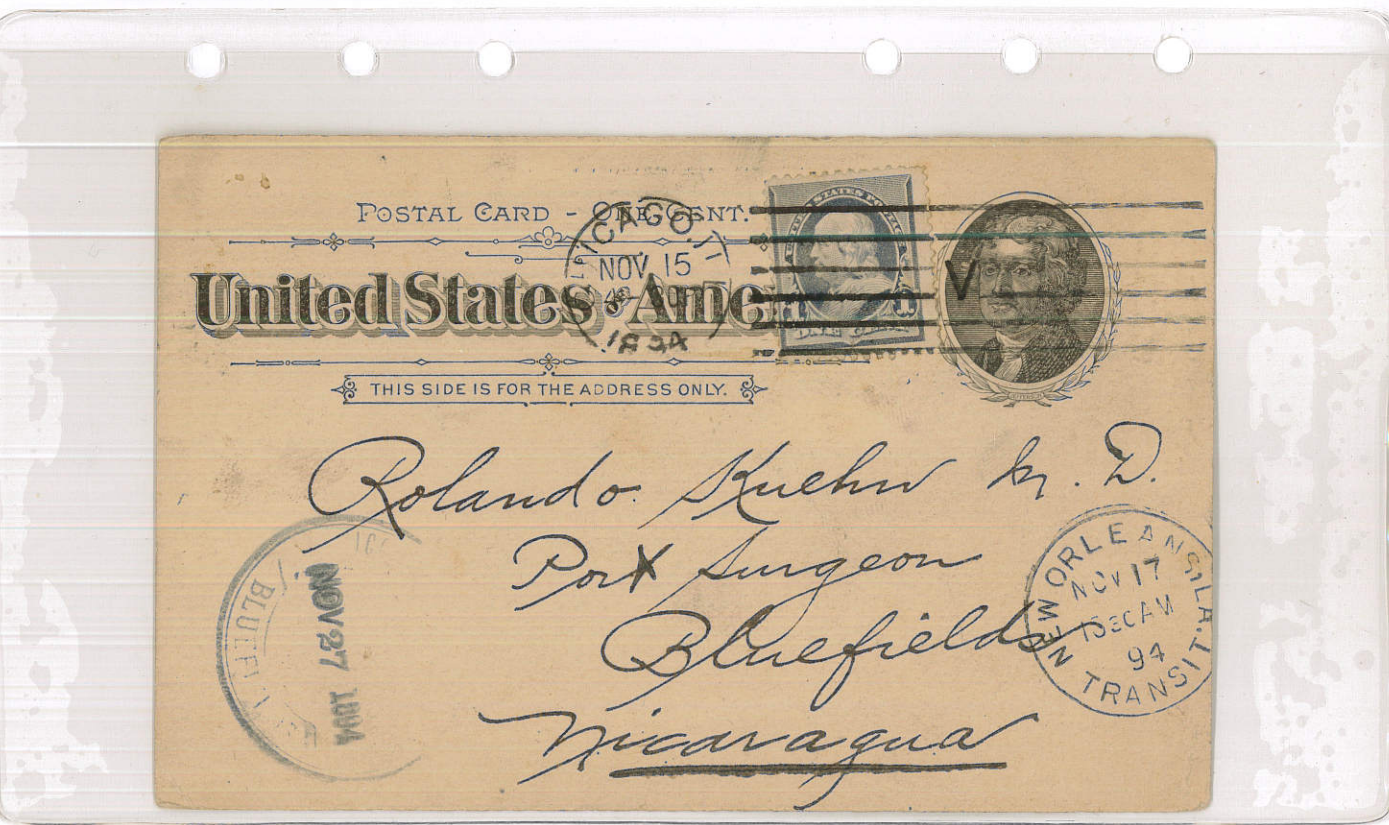 POSTAL CARD - ONE CENT.
United States of Ame
THIS SIDE IS FOR THE ADDRESS ONLY.
CHICAGO, ILL
NOV 15
1894
V
Rolando Kuehn M. D.
Port Surgeon
Bluefields
Nicaragua
NEW ORLEANS, LA.
NOV 17
94
TRANSIT
NOV 27 1894